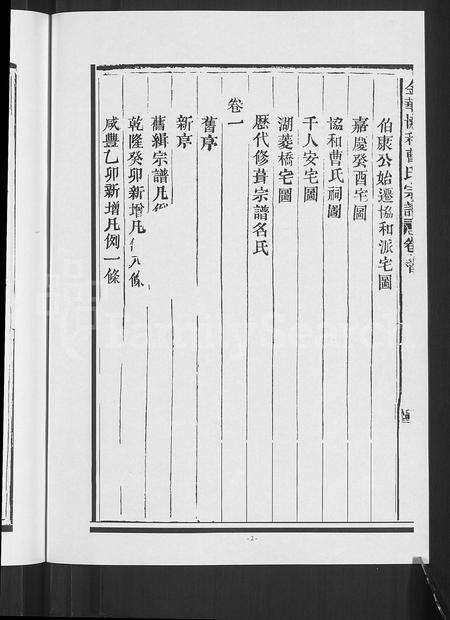 金華協和曹氏宗譜 卷首
伯康公始遷協和派宅圖
嘉慶癸酉宅圖
協和曹氏祠圖
千人安宅圖
湖菱橋宅圖
歷代修葺宗譜名氏
卷一
舊序
新序
舊緝宗譜凡例
乾隆癸卯新增凡例八條
咸豐乙卯新增凡例一條
-2-
FamilySearch